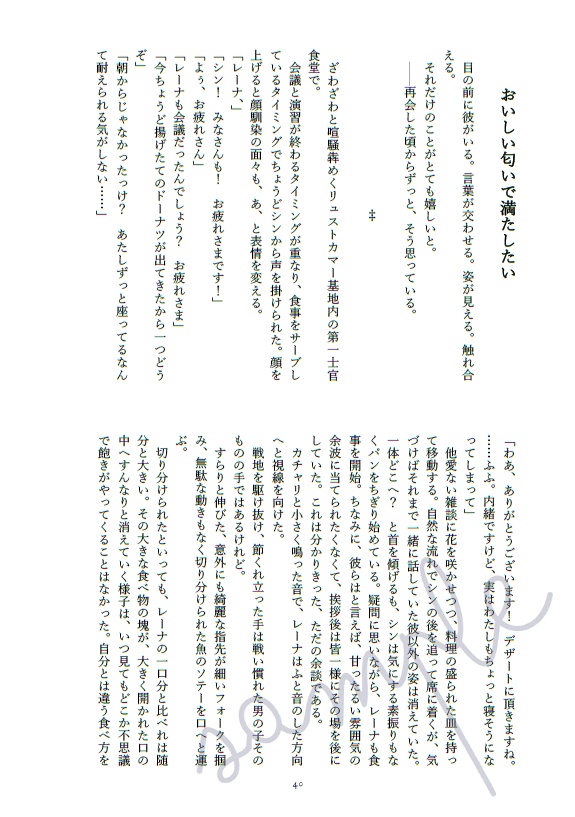 おいしい匂いで満たしたい
目の前に彼がいる。言葉が交わせる。姿が見える。触れ合
える。
それだけのことがとても嬉しいと。
――再会した頃からずっと、そう思っている。
‡
ざわざわと喧騒犇めくリュストカマー基地内の第一士官
食堂で。
会議と演習が終わるタイミングが重なり、食事をサーブし
ているタイミングでちょうどシンから声を掛けられた。顔を
上げると顔馴染の面々も、あ、と表情を変える。
「レーナ、」
「シン！　みなさんも！　お疲れさまです！」
「よぅ、お疲れさん」
「レーナも会議だったんでしょう？　お疲れさま」
「今ちょうど揚げたてのドーナツが出てきたから一つどう
ぞ」
「朝からじゃなかったっけ？　あたしずっと座ってるなん
て耐えられる気がしない……」
「わあ、ありがとうございます！　デザートに頂きますね。
……ふふ。内緒ですけど、実はわたしもちょっと寝そうにな
ってしまって」
他愛ない雑談に花を咲かせつつ、料理の盛られた皿を持っ
て移動する。自然な流れでシンの後を追って席に着くが、気
づけばそれまで一緒に話していた彼以外の姿は消えていた。
一体どこへ？　と首を傾げるも、シンは気にする素振りもな
くパンをちぎり始めている。疑問に思いながら、レーナも食
事を開始。ちなみに、彼らはと言えば、甘ったるい雰囲気の
余波に当てられたくなくて、挨拶後は皆一様にその場を後に
していた。これは分かりきった、ただの余談である。
カチャリと小さく鳴った音で、レーナはふと音のした方向
へと視線を向けた。
戦地を駆け抜け、節くれ立った手は戦い慣れた男の子その
ものの手ではあるけれど。
すらりと伸びた、意外にも綺麗な指先が細いフォークを掴
み、無駄な動きもなく切り分けられた魚のソテーを口へと運
ぶ。
切り分けられたといっても、レーナの一口分と比べれば随
分と大きい。その大きな食べ物の塊が、大きく開かれた口の
中へすんなりと消えていく様子は、いつ見てもどこか不思議
で飽きがやってくることはなかった。自分とは違う食べ方を
sample
40